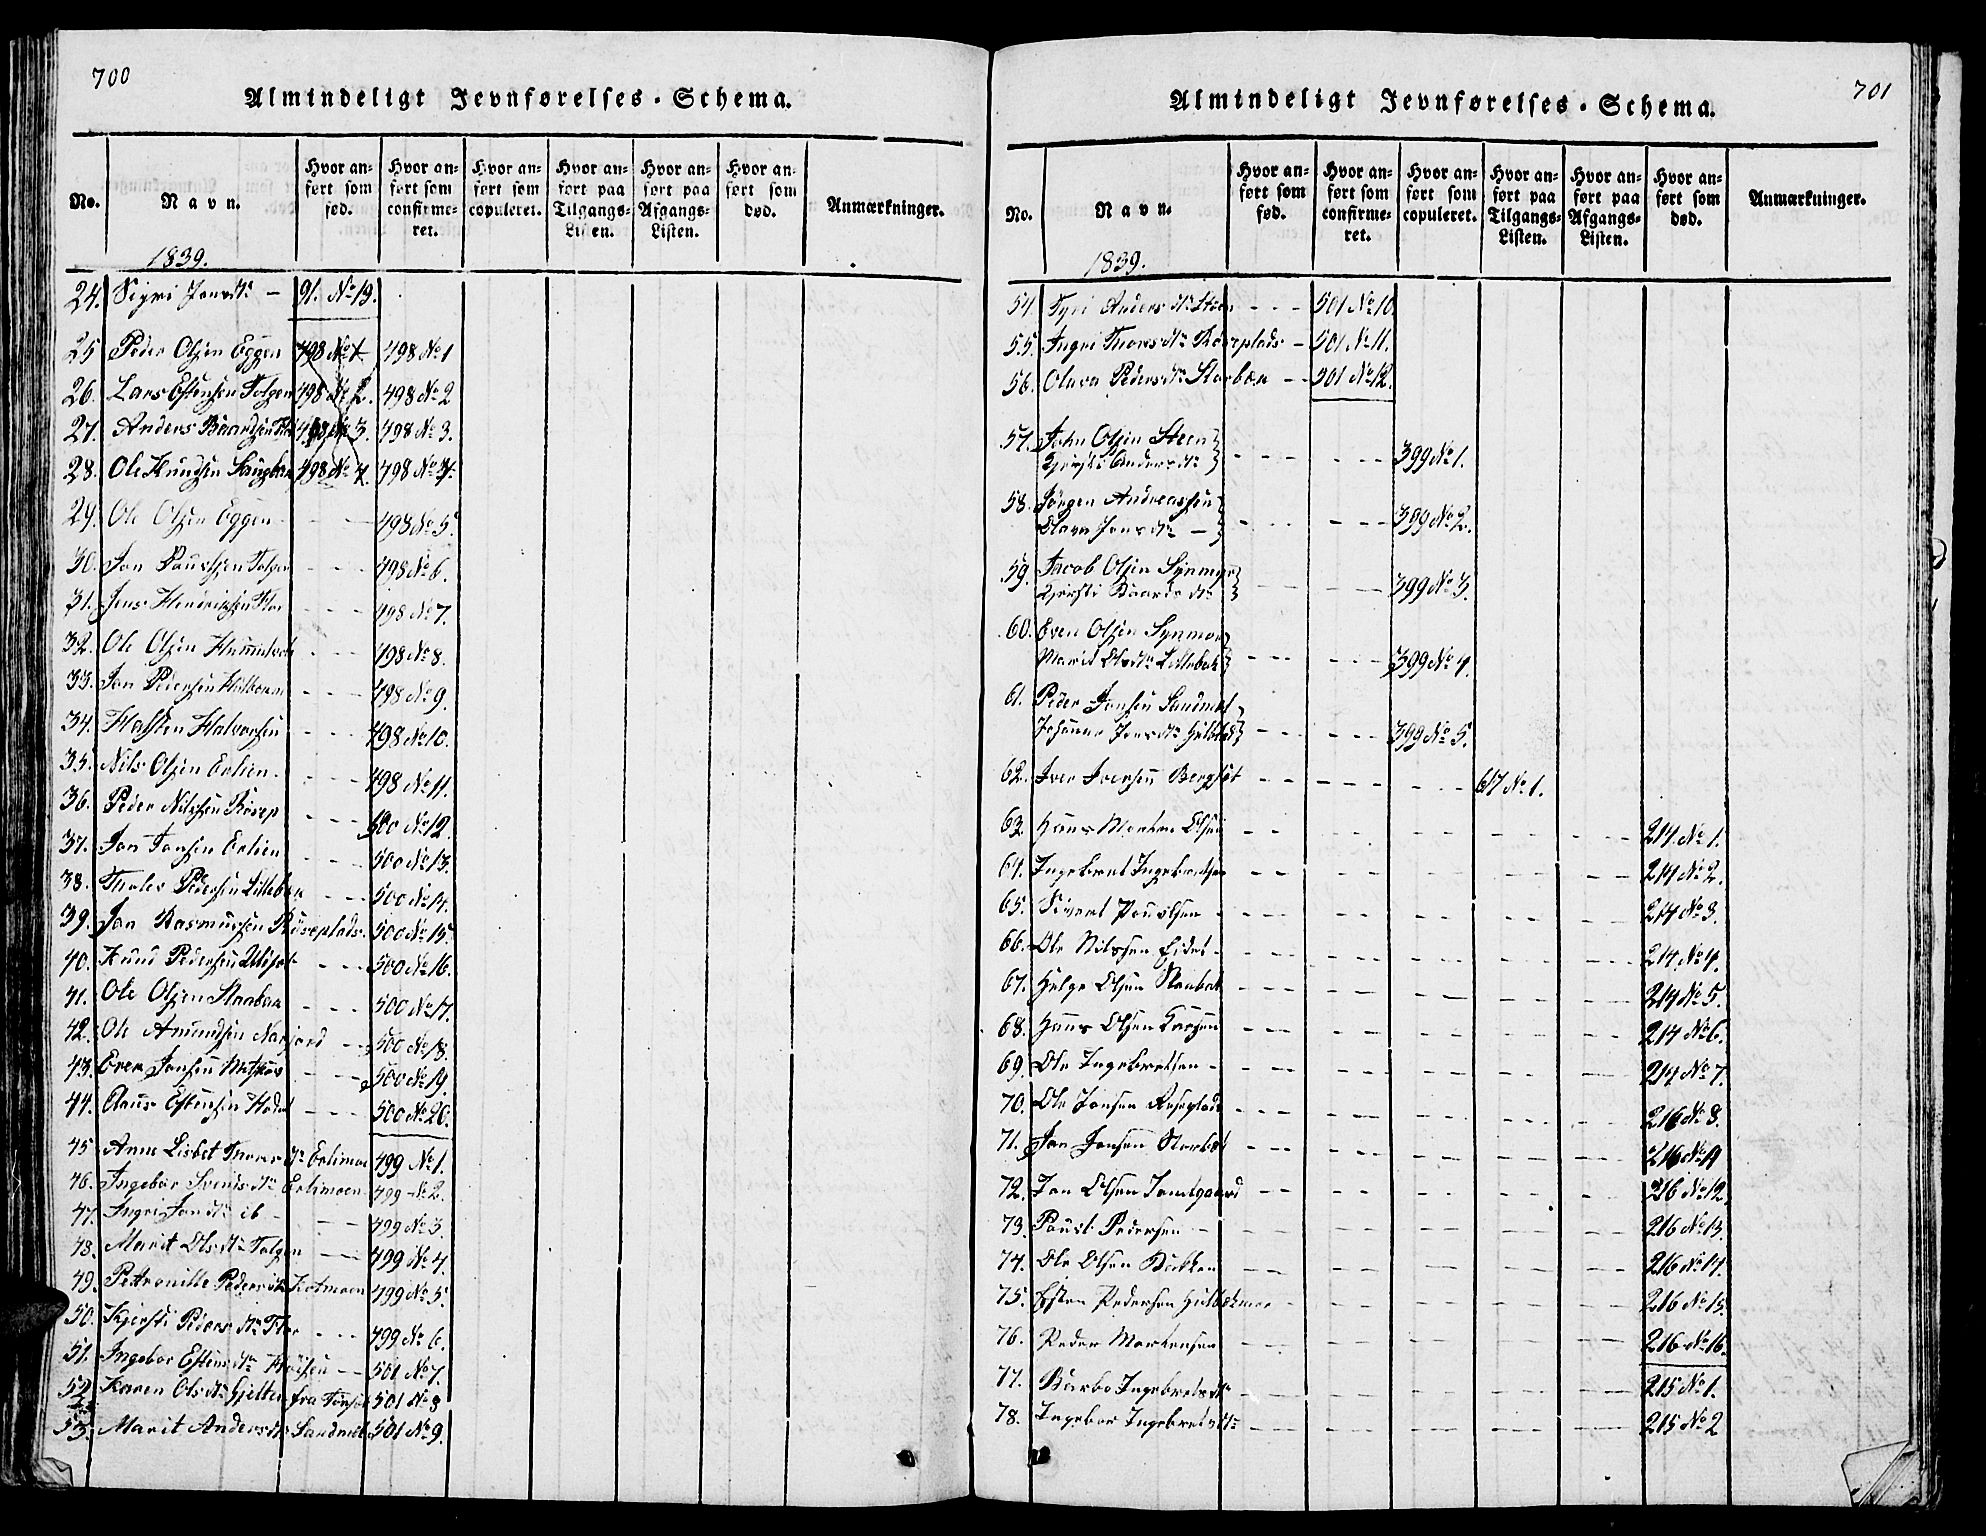 700
Almindeligt Jevnførelses-Schema.
No. Navn. Hvor anført som fød. Hvor anført som confirmeret. Hvor anført som copuleret. Hvor anført paa Tilgangs-Listen. Hvor anført paa Afgangs-Listen. Hvor anført som død. Anmærkninger.
1839.
24. Sigri Jonsdtr - 91. No 19.
25 Peder Olsen Eggen 498 No 1 498 No 1
26. Lars Estensen Tolgen 498 No 2. 498 No 2
27. Anders Baardsen 498 No 3. 498 No 3.
28. Ole Knudsen 498 No 4. 498 No 4.
29. Ole Olsen Eggen - - - 498 No 5.
30. Jon Paulsen Tolgen - - - 498 No 6.
31. Jens Hendrichsen - - - 498 No 7.
32. Ole Olsen - - - 498 No 8.
33. Jon Pedersen - - - 498 No 9.
34. Halsten Halvorsen - - - 498 No 10.
35. Nils Olsen Erlien - - - 498 No 11.
36. Peder Nilssen - - - 500 No 12.
37. Jon Jonsen Erlien - - - 500 No 13.
38. Pedersen Lillebæk - - 500 No 14.
39. Jon Rasmussen Røseplads. 500 No 15.
40. Knud Pedersen - - - 500 No 16.
41. Ole Olsen - - - 500 No 17.
42. Ole Amundsen Narjord - - 500 No 18.
43. Even Jonsen - - - 500 No 19.
44. Claus Estensen - - - 500 No 20.
45 Anne Lisbet Thorsdtr Erlimoen 499 No 1.
46. Ingebor Svendsdtr Erlimoen 499 No 2.
47. Ingri Jondtr ib - - - 499 No 3.
48. Marit Olsdtr Tolgen - - 499 No 4.
49. Petronille Pedersdtr Kotmoen 499 No 5.
50. Kjersti Pedersdtr - - - 499 No 6.
51. Ingebor Estensdtr - - 501 No 7.
52 Karen Olsdtr Gjelten fra Tønset 501 No 8
53. Marit Andersdtr Sandmæl 501 No 9.
701
Almindeligt Jevnførelses-Schema.
No. Navn. Hvor anført som fød. Hvor anført som confirmeret. Hvor anført som copuleret. Hvor anført paa Tilgangs-Listen. Hvor anført paa Afgangs-Listen. Hvor anført som død. Anmærkninger.
1839.
54. Andersdtr Steen - - - 501 No 10.
55. Ingri Thorsdtr Røseplads - 501 No 11.
56. Olava Pedersdtr Storbæk - - 501 No 12.
57. John Olsen Steen
Kjersti Andersdtr - - - - - - 399 No 1.
58. Jørgen Andreassen
Olava Jonsdtr - - - - - - - 399 No 2.
59. Jacob Olsen
Kjersti Baardsdtr - - - - - - 399 No 3.
60. Even Olsen
Marit Olsdtr Lillebæk - - - - - - 399 No 4.
61. Peder Jonsen Sandmæl
Johanna Jonsdtr - - - - - - 399 No 5.
62. Iver Iversen - - - - - - - - 617 No 1.
63. Hans Morten Olsen - - - - - - - 214 No 1.
64. Ingebret Ingebretsen - - - - - - - 214 No 2.
65. Sivert Poulsen - - - - - - - 214 No 3.
66. Ole Nilssen Eidet - - - - - - - 214 No 4.
67. Helge Olsen - - - - - - - 214 No 5.
68. Hans Olsen - - - - - - - 214 No 6.
69. Ole Ingebretsen - - - - - - - 214 No 7.
70. Ole Jonsen Røseplads - - - - - - - 216 No 8.
71. Jon Jonsen - - - - - - - 216 No 11
72. Jon Olsen - - - - - - - 216 No 12.
73. Poul Pedersen - - - - - - - 216 No 13.
74. Ole Olsen Bakken - - - - - - - 216 No 14.
75. Esten Pedersen - - - - - - - 216 No 15.
76. Peder Mortensen - - - - - - - 216 No 16.
77. Barbo Ingebretsdtr - - - - - - - 215 No 1.
78. Ingebor Ingebretsdtr - - - - - - - 215 No 2